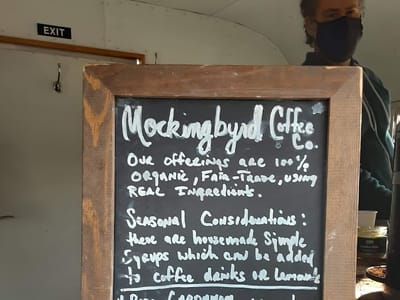 EXIT
Mockingbyrd Coffee
Co.
OUR OFFERINGS ARE 100%
ORGANIC, FAIR-TRADE, USING
REAL INGREDIENTS.
SEASONAL CONSIDERATIONS:
there are housemade Simple
Syrups which can be added
to coffee drinks or lemonade
CARDAMOM